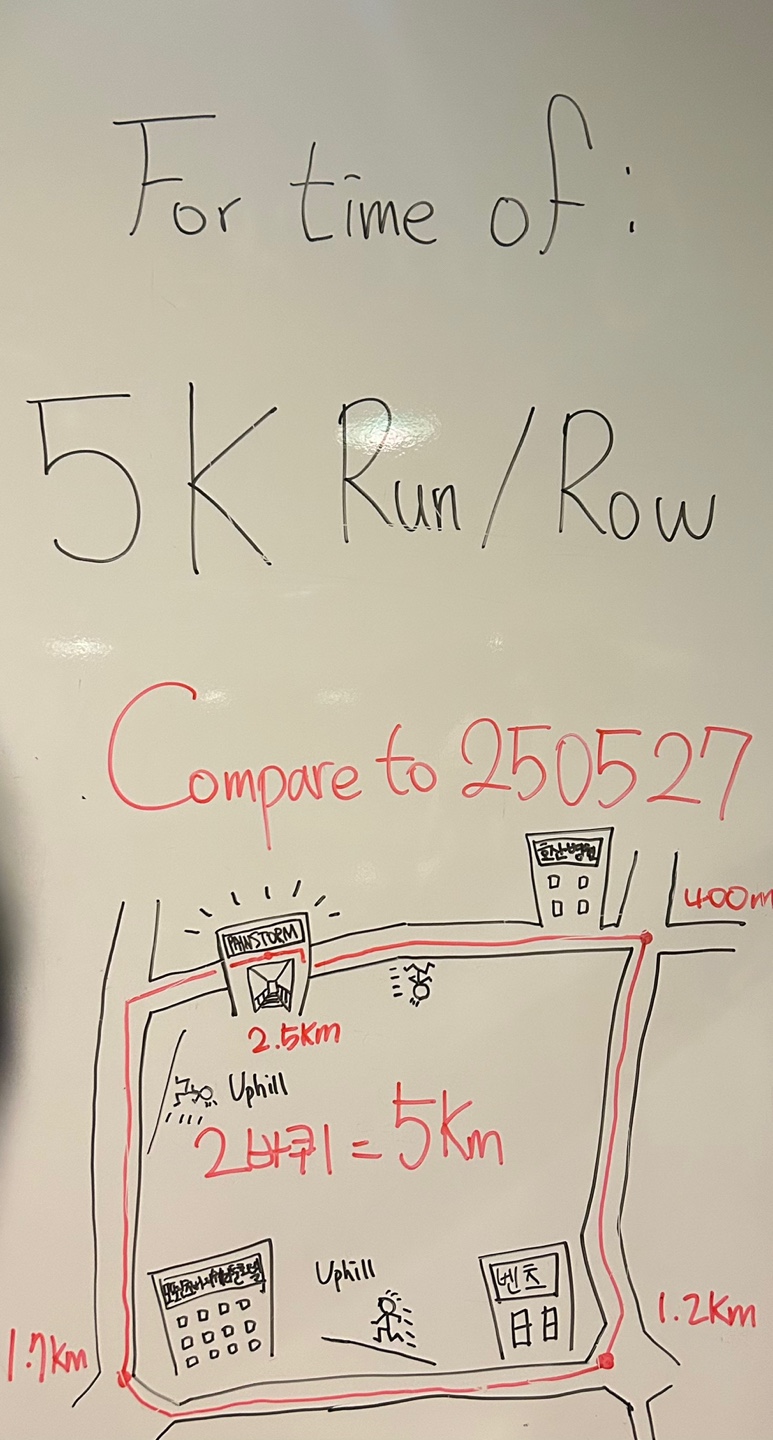 For time of:
5K Run/Row
Compare to 250527
화산병원
400m
PAINSTORM
2.5Km
Uphill
2바퀴 = 5Km
Uphill
벤츠
1.2Km
1.7Km